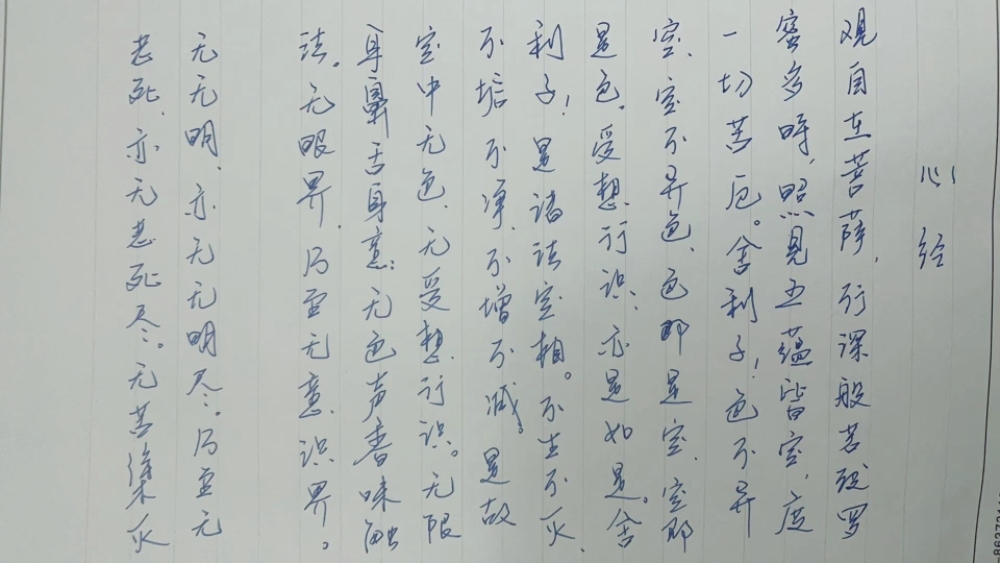 心经
观自在菩萨,行深般若波罗
蜜多时,照见五蕴皆空,度
一切苦厄。舍利子!色不异
空、空不异色、色即是空、空即
是色。受想行识:亦是如是。舍
利子!是诸法空相。不生不灭、
不垢不净、不增不减。是故
空中无色、无受想行识。无眼
耳鼻舌身意;无色声香味触
法。无眼界,乃至无意识界。
无无明、亦无无明尽。乃至无
老死、亦无老死尽。无苦集灭